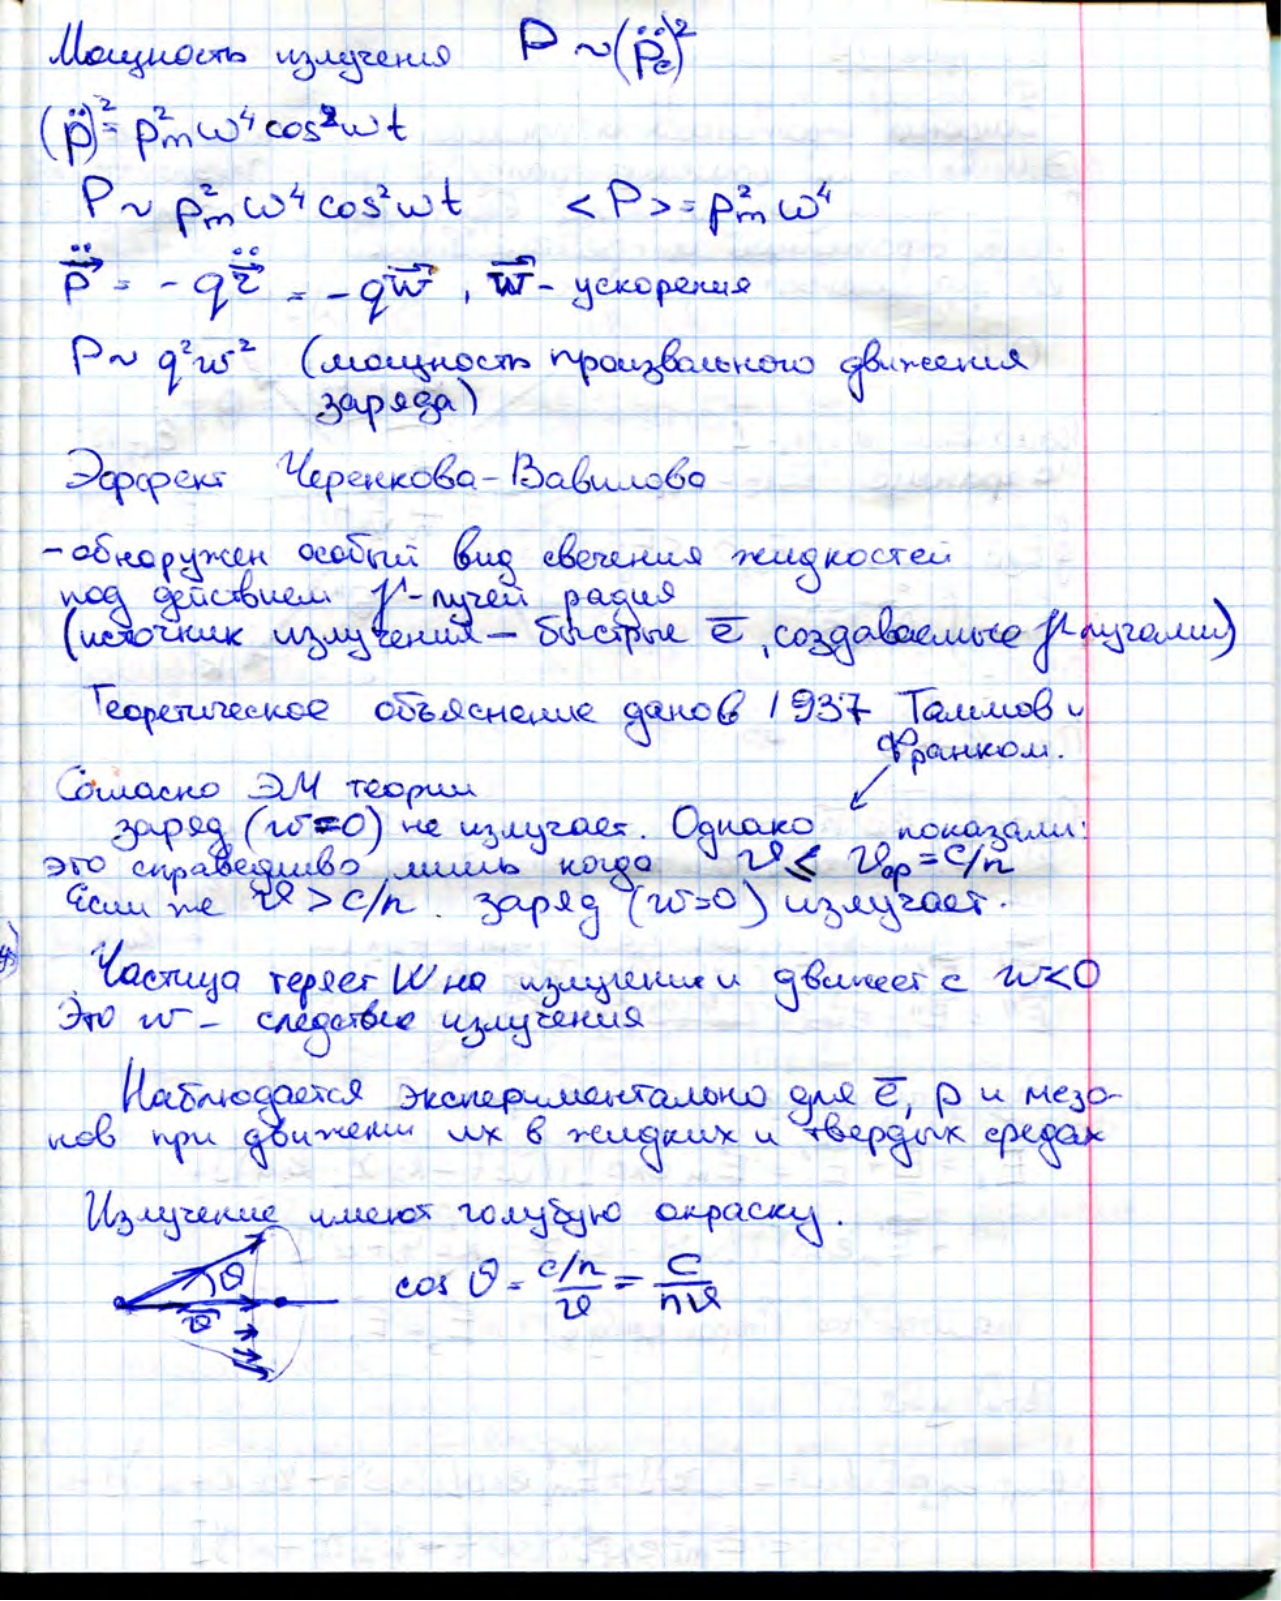 Мощность излучения P ~ (p̈_e)²
(p̈)² = p²_m ω⁴ cos² ωt
P ~ p²_m ω⁴ cos² ωt <P> = p²_m ω⁴
p̈⃗ = - q r̈⃗ = - q w⃗ , w⃗ - ускорения
P ~ q² w² (мощность произвального движения
заряда)
Эффект Черенкова-Вавилова
- обнаружен особый вид свечения жидкостей
под действием γ-лучей радия
(источник излучения — быстрые e̅, создаваемые γ-лучами)
Теоретическое объяснение дано в 1937 Таммов и
Франком.
Согласно ЭМ теории
заряд (w=0) не излучает. Однако показали:
это справедливо лишь когда v ≤ v_ср = c/n
Если же v > c/n . заряд (w=0) излучает.
Частица теряет W на излучении и движеет с w<0
Это w - следствие излучения
Наблюдается экспериментально для e̅, p и мезо-
нов при движении их в жидких и твердых средах
Излучение имеют голубую окраску.
θ
v⃗
cos θ = (c/n)/v = c/(nv)